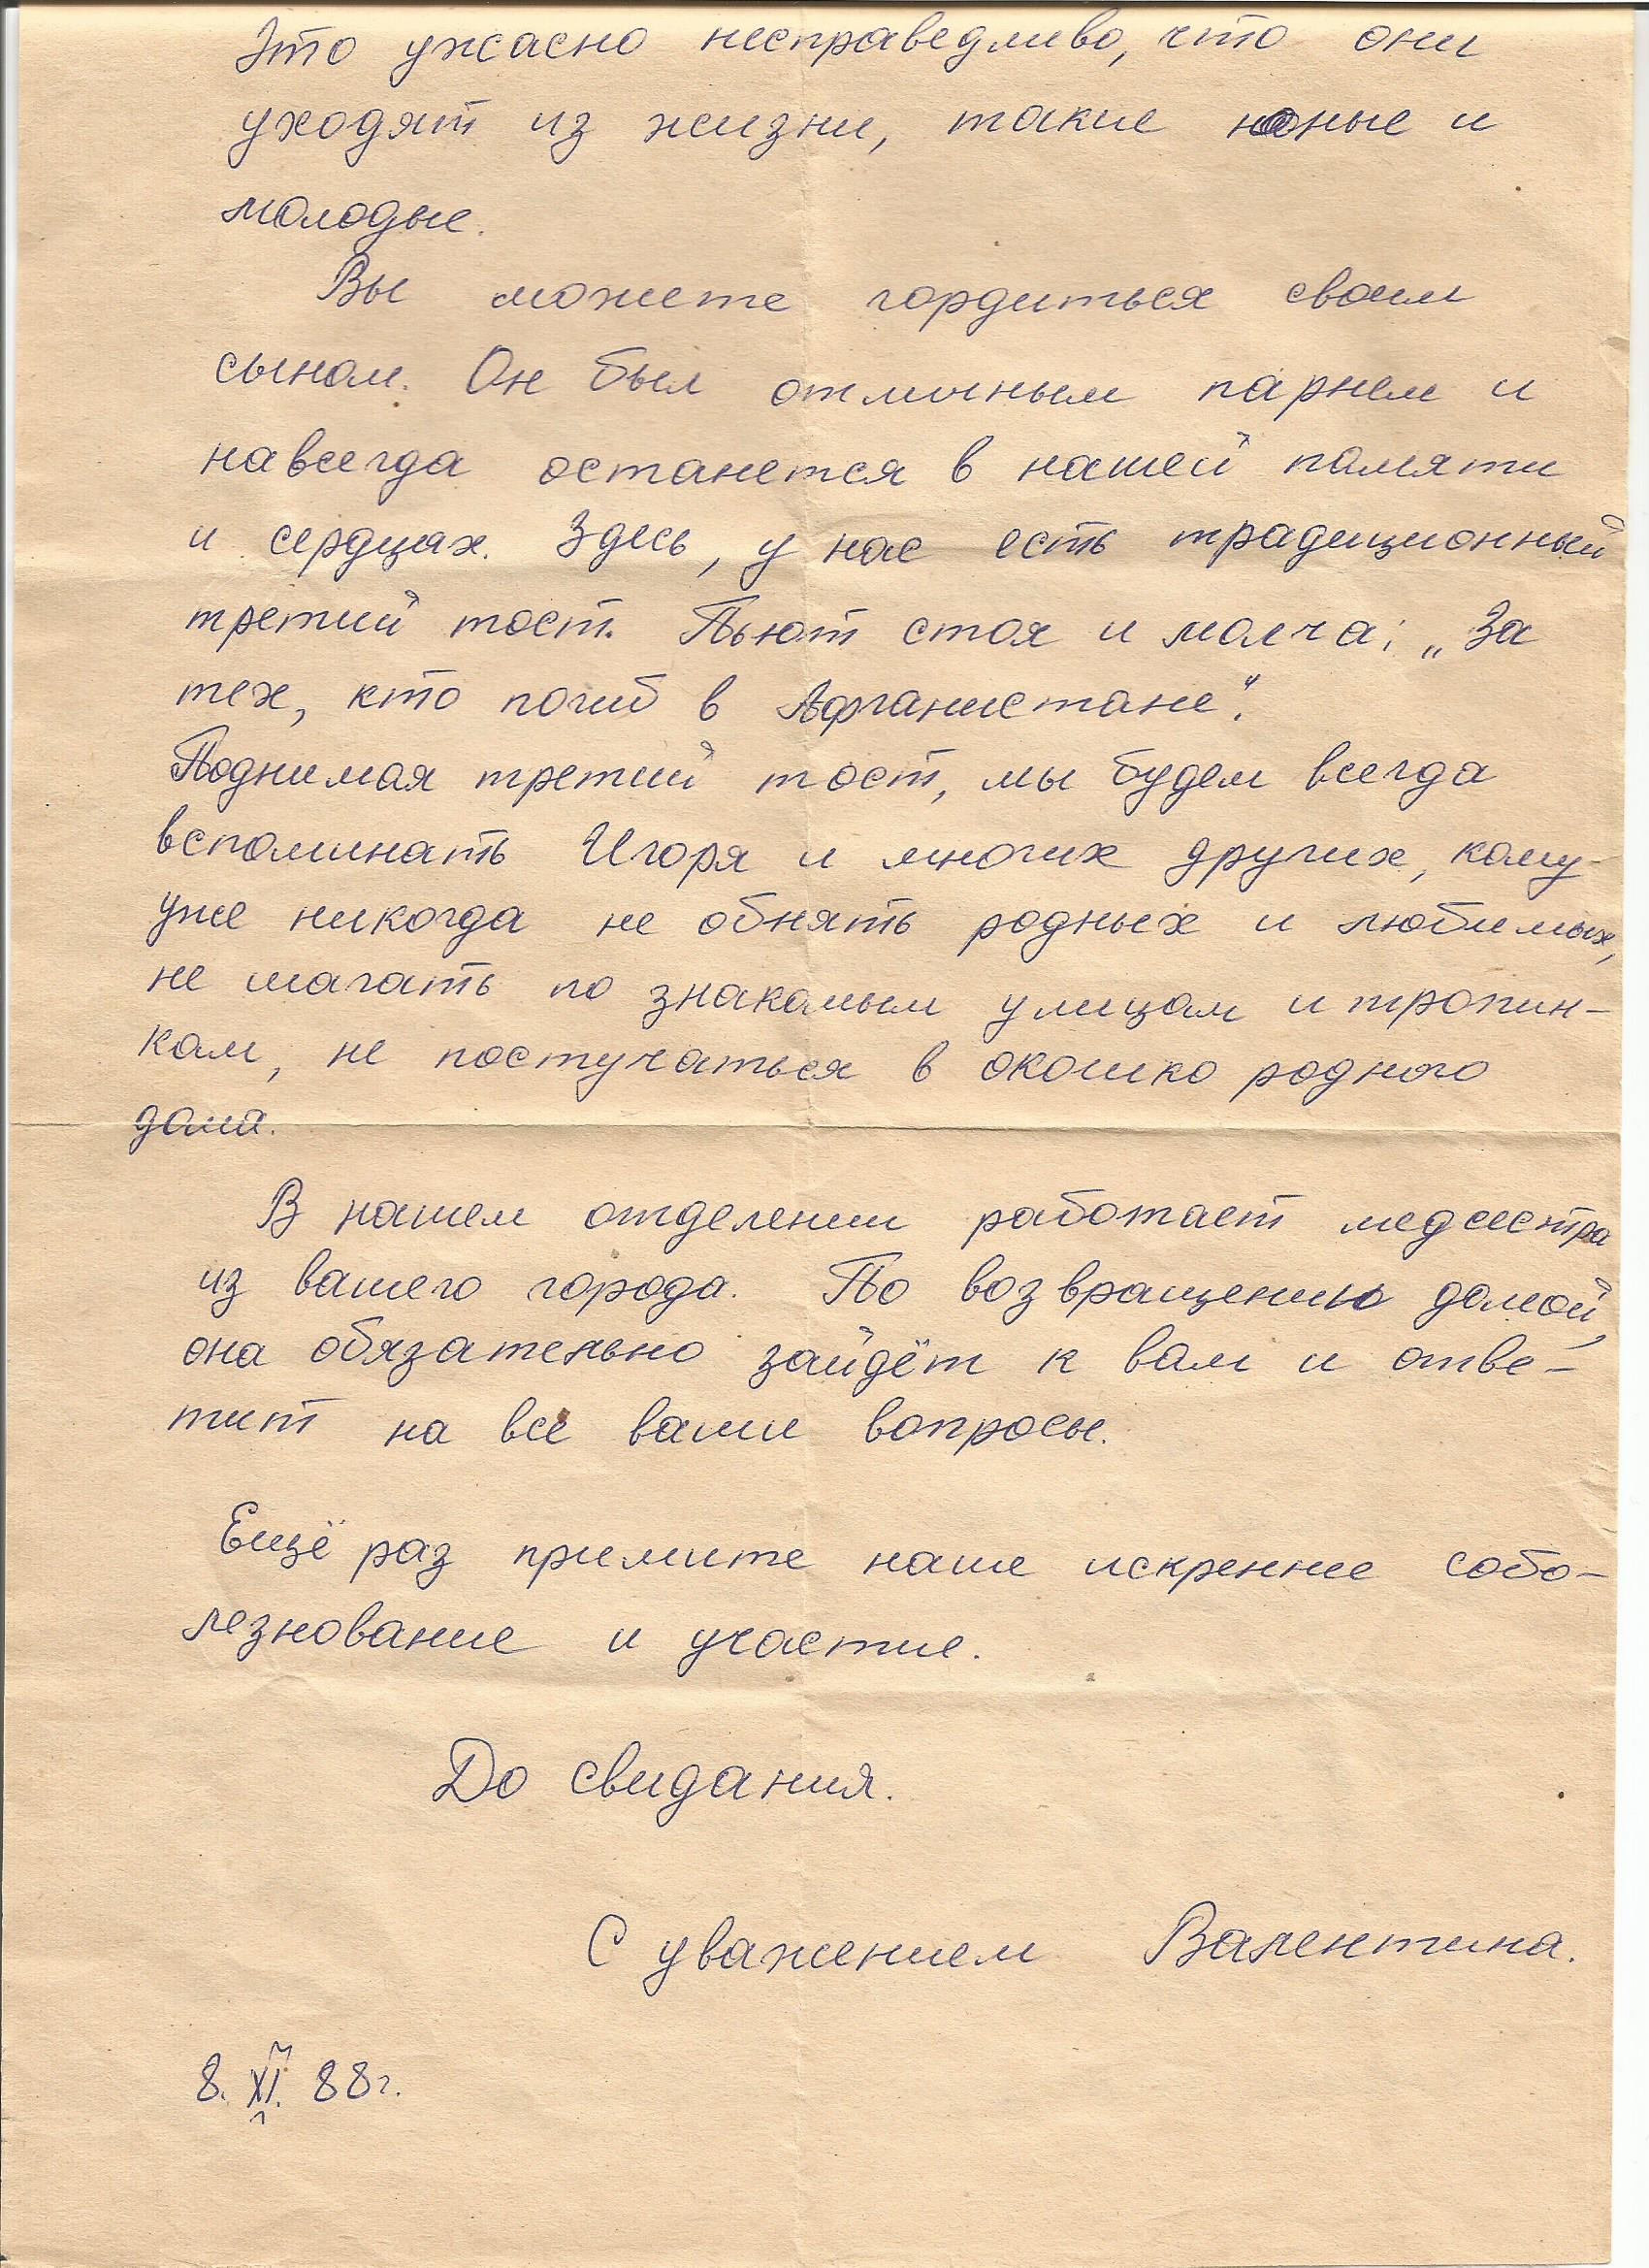 Это ужасно несправедливо, что они
уходят из жизни, такие юные и
молодые.
Вы можете гордиться своим
сыном. Он был отличным парнем и
навсегда останется в нашей памяти
и сердцах. Здесь, у нас есть традиционный
третий тост. Пьют стоя и молча: „За
тех, кто погиб в Афганистане“.
Поднимая третий тост, мы будем всегда
вспоминать Игоря и многих других, кому
уже никогда не обнять родных и любимых,
не шагать по знакомым улицам и тропин-
кам, не постучаться в окошко родного
дома.
В нашем отделении работает медсестра
из вашего города. По возвращению домой,
она обязательно зайдёт к вам и отве-
тит на все ваши вопросы.
Ещё раз примите наше искренне собо-
лезнование и участие.
До свидания.
С уважением Валентина.
8. XI. 88г.